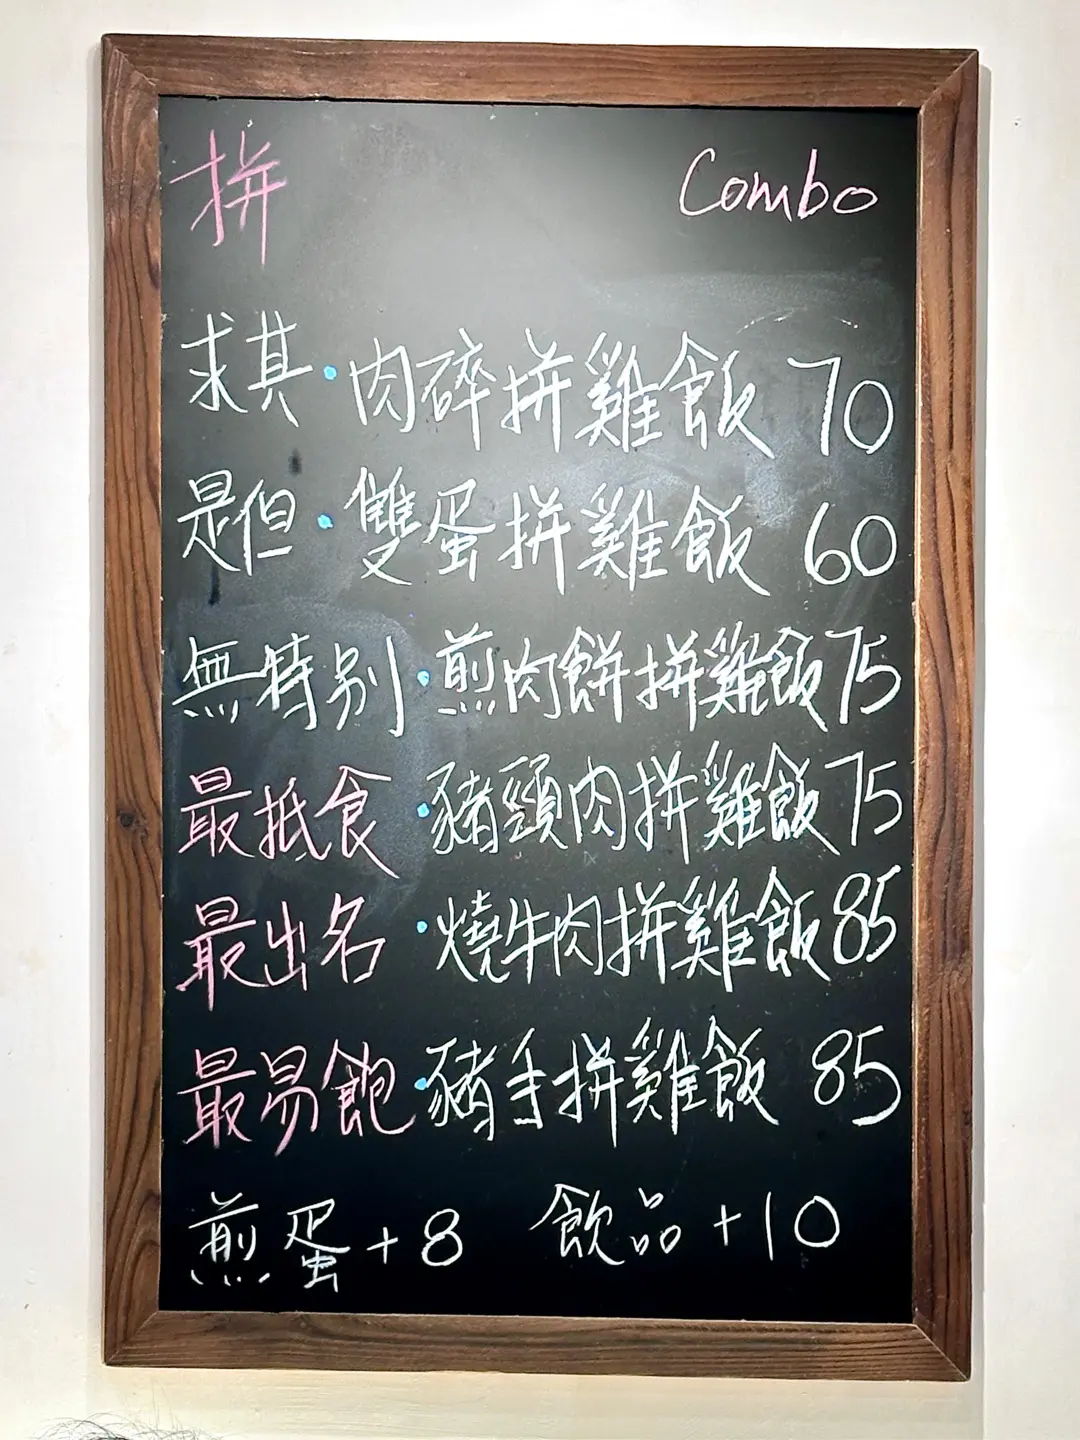 拼 Combo
求其·肉碎拼雞飯 70
是但·雙蛋拼雞飯 60
無特別·煎肉餅拼雞飯 75
最抵食·豬頸肉拼雞飯 75
最出名·燒牛肉拼雞飯 85
最易飽·豬手拼雞飯 85
煎蛋+8 飲品+10